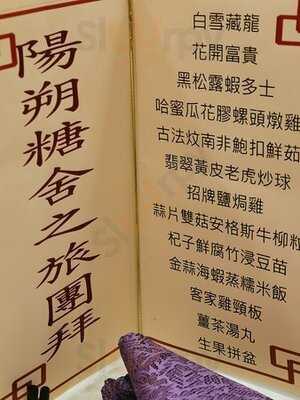 陽朔糖舍之旅團拜
白雪藏龍
花開富貴
黑松露蝦多士
哈蜜瓜花膠螺頭燉雞
古法炆南非鮑扣鮮菇
翡翠黃皮老虎炒球
招牌鹽焗雞
蒜片雙菇安格斯牛柳粒
杞子鮮腐竹浸豆苗
金蒜海蝦蒸糯米飯
客家雞頸板
薑茶湯丸
生果拼盆